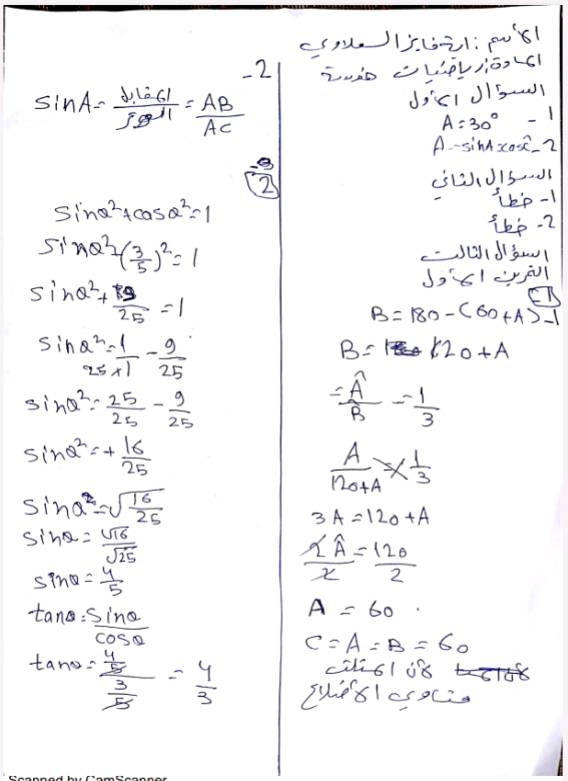 الأسم: ارة فايز السعلاوي
المادة: رياضيات هندسة
السؤال الأول
1- A = 30°
2- A = sinA x cosĉ
السؤال الثاني
1- خطأ
2- خطأ
السؤال الثالث
التمرين الأول
1- B = 180 - (60 + A)
B = 120 + A
= Â/B̂ = 1/3
A/120+A × 1/3
3A = 120 + A
2Â/2 = 120/2
A = 60
C = A = B = 60
لأن المثلث
متساوي الأضلاع
2-
sinA = المقابل/الوتر = AB/AC
2
sina² + cosa² = 1
sina² + (3/5)² = 1
sina² + 9/25 = 1
sina² = 1/25x1 - 9/25
sina² = 25/25 - 9/25
sina² = + 16/25
sina² = √16/25
sina = √16/√25
sina = 4/5
tana = sina/cosa
tana = 4/5/3/5 = 4/3
Scanned by CamScanner